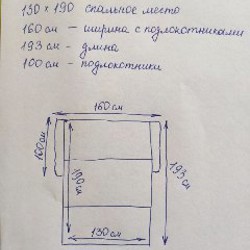 130 x 190 спальное место
160 см - ширина с подлокотниками
193 см - длина
100 см - подлокотники
160 см
100 см
190 см
193 см
130 см